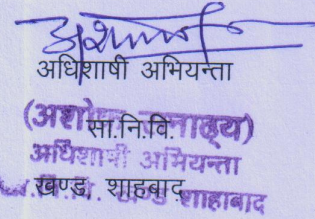 अधिशाषी अभियन्ता
(अशोक सनाढ्य)
सा.नि.वि.
अधिशाषी अभियन्ता
खण्ड, शाहबाद
खण्ड शाहाबाद